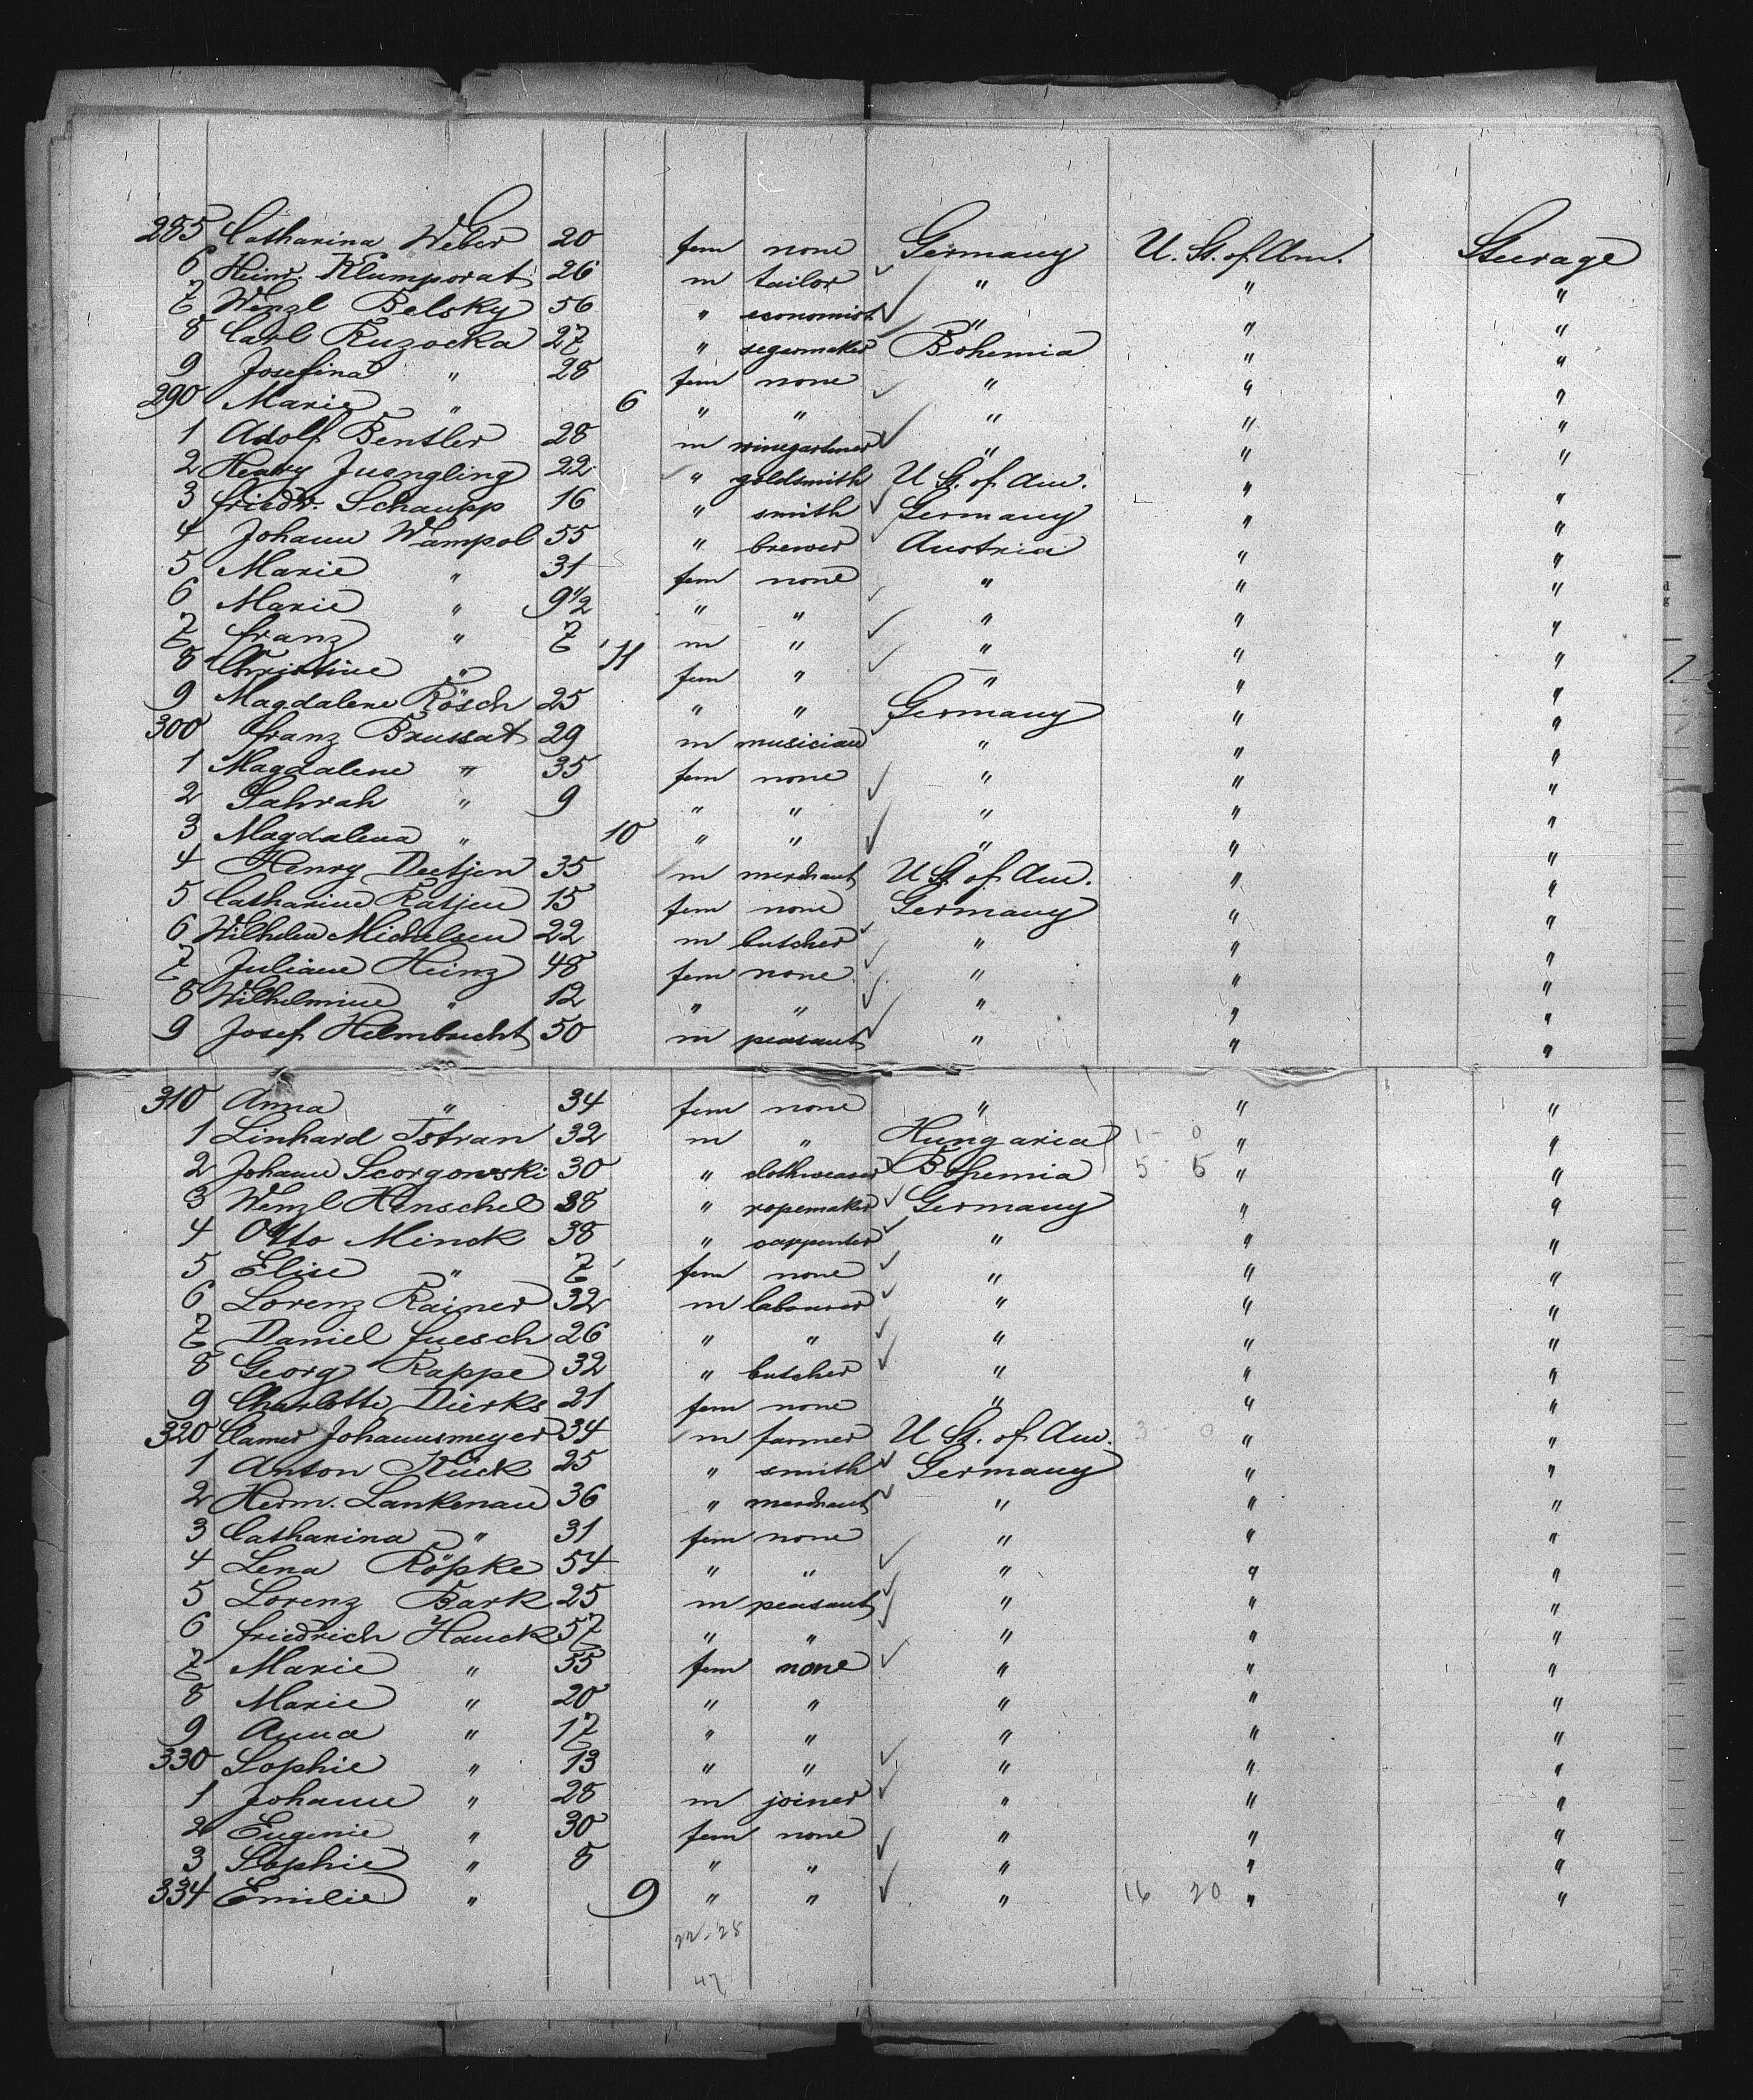 285 Catharina Weber 20 fem none Germany U. St. of Am. Steerage
6 Heinr. Klumporat 26 m tailor " " "
7 Wenzl Belsky 56 " economist " " "
8 Carl Ruzocka 27 " segarmaker Bohemia " "
9 Josefina " 28 fem none " " "
290 Marie " 6 " " " " "
1 Adolf Bentler 28 m winegartener " " "
2 Henry Juengling 22 " goldsmith U St. of Am. " "
3 Friedr. Schaupp 16 " smith Germany " "
4 Johann Wampol 55 " brewer Austria " "
5 Marie " 31 fem none " " "
6 Marie " 9 1/2 " " " " "
7 Franz " 7 m " " " "
8 Christine " 11 fem " " " "
9 Magdalene Rösch 25 " " Germany " "
300 Franz Brussat 29 m musician " " "
1 Magdalene " 35 fem none " " "
2 Sahrah " 9 " " " " "
3 Magdalena " 10 " " " " "
4 Henry Deetjen 35 m merchant U St. of Am. " "
5 Catharine Ratjen 15 fem none Germany " "
6 Wilhelm Michelsen 22 m butcher " " "
7 Juliane Heinz 48 fem none " " "
8 Wilhelmine " 12 " " " " "
9 Josef Helmbrecht 50 m peasant " " "
310 Anna " 34 fem none " " "
1 Linhard Istran 32 m " Hungaria 1 - 0 " "
2 Johann Scorgowski 30 " clothweaver Bohemia 5 - 5 " "
3 Wenzl Henschel 38 " ropemaker Germany " "
4 Otto Minck 38 " carpenter " " "
5 Elise " 7 fem none " " "
6 Lorenz Rainer 32 m labourer " " "
7 Daniel Fuesch 26 " " " " "
8 Georg Rappe 32 " butcher " " "
9 Charlotte Dierks 21 fem none " " "
320 Clamer Johannsmeyer 34 m farmer U St. of Am. 3 - 0 " "
1 Anton Kück 25 " smith Germany " "
2 Herm. Lankenau 36 " merchant " " "
3 Catharina " 31 fem none " " "
4 Lena Röpke 54 " " " " "
5 Lorenz Bark 25 m peasant " " "
6 Friedrich Hauck 57 " " " " "
7 Marie " 55 fem none " " "
8 Marie " 20 " " " " "
9 Anna " 17 " " " " "
330 Sophie " 13 " " " " "
1 Johann " 28 m joiner " " "
2 Eugenie " 30 fem none " " "
3 Sophie " 8 " " " " "
334 Emilie " 9 " " " 16 20 " "
22-25
47